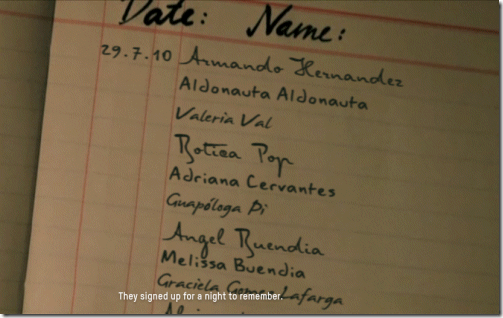 Date: Name:
29.7.10 Armando Hernandez
Aldonauta Aldonauta
Valeria Val
Botica Pop
Adriana Cervantes
Guapóloga Pi
Angel Buendia
Melissa Buendia
Graciela Gomez Lafarga
They signed up for a night to remember.